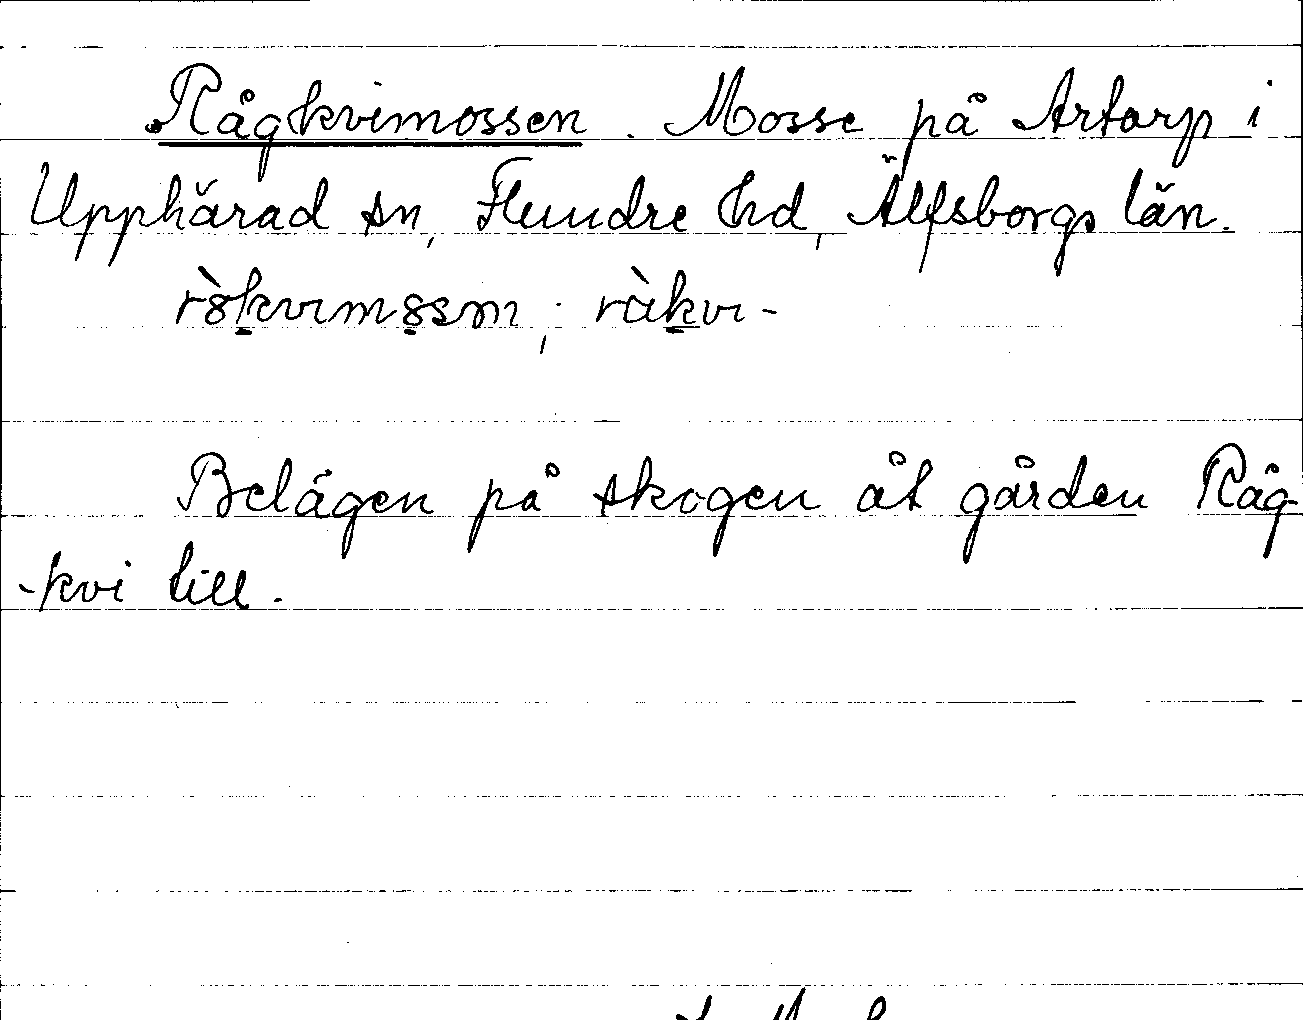 Rågkvimossen. Mosse på Artorp i
Upphärad sn, Flundre hd, Älfsborgs län.
Belägen på skogen åt gården Råg-
-kvi till.